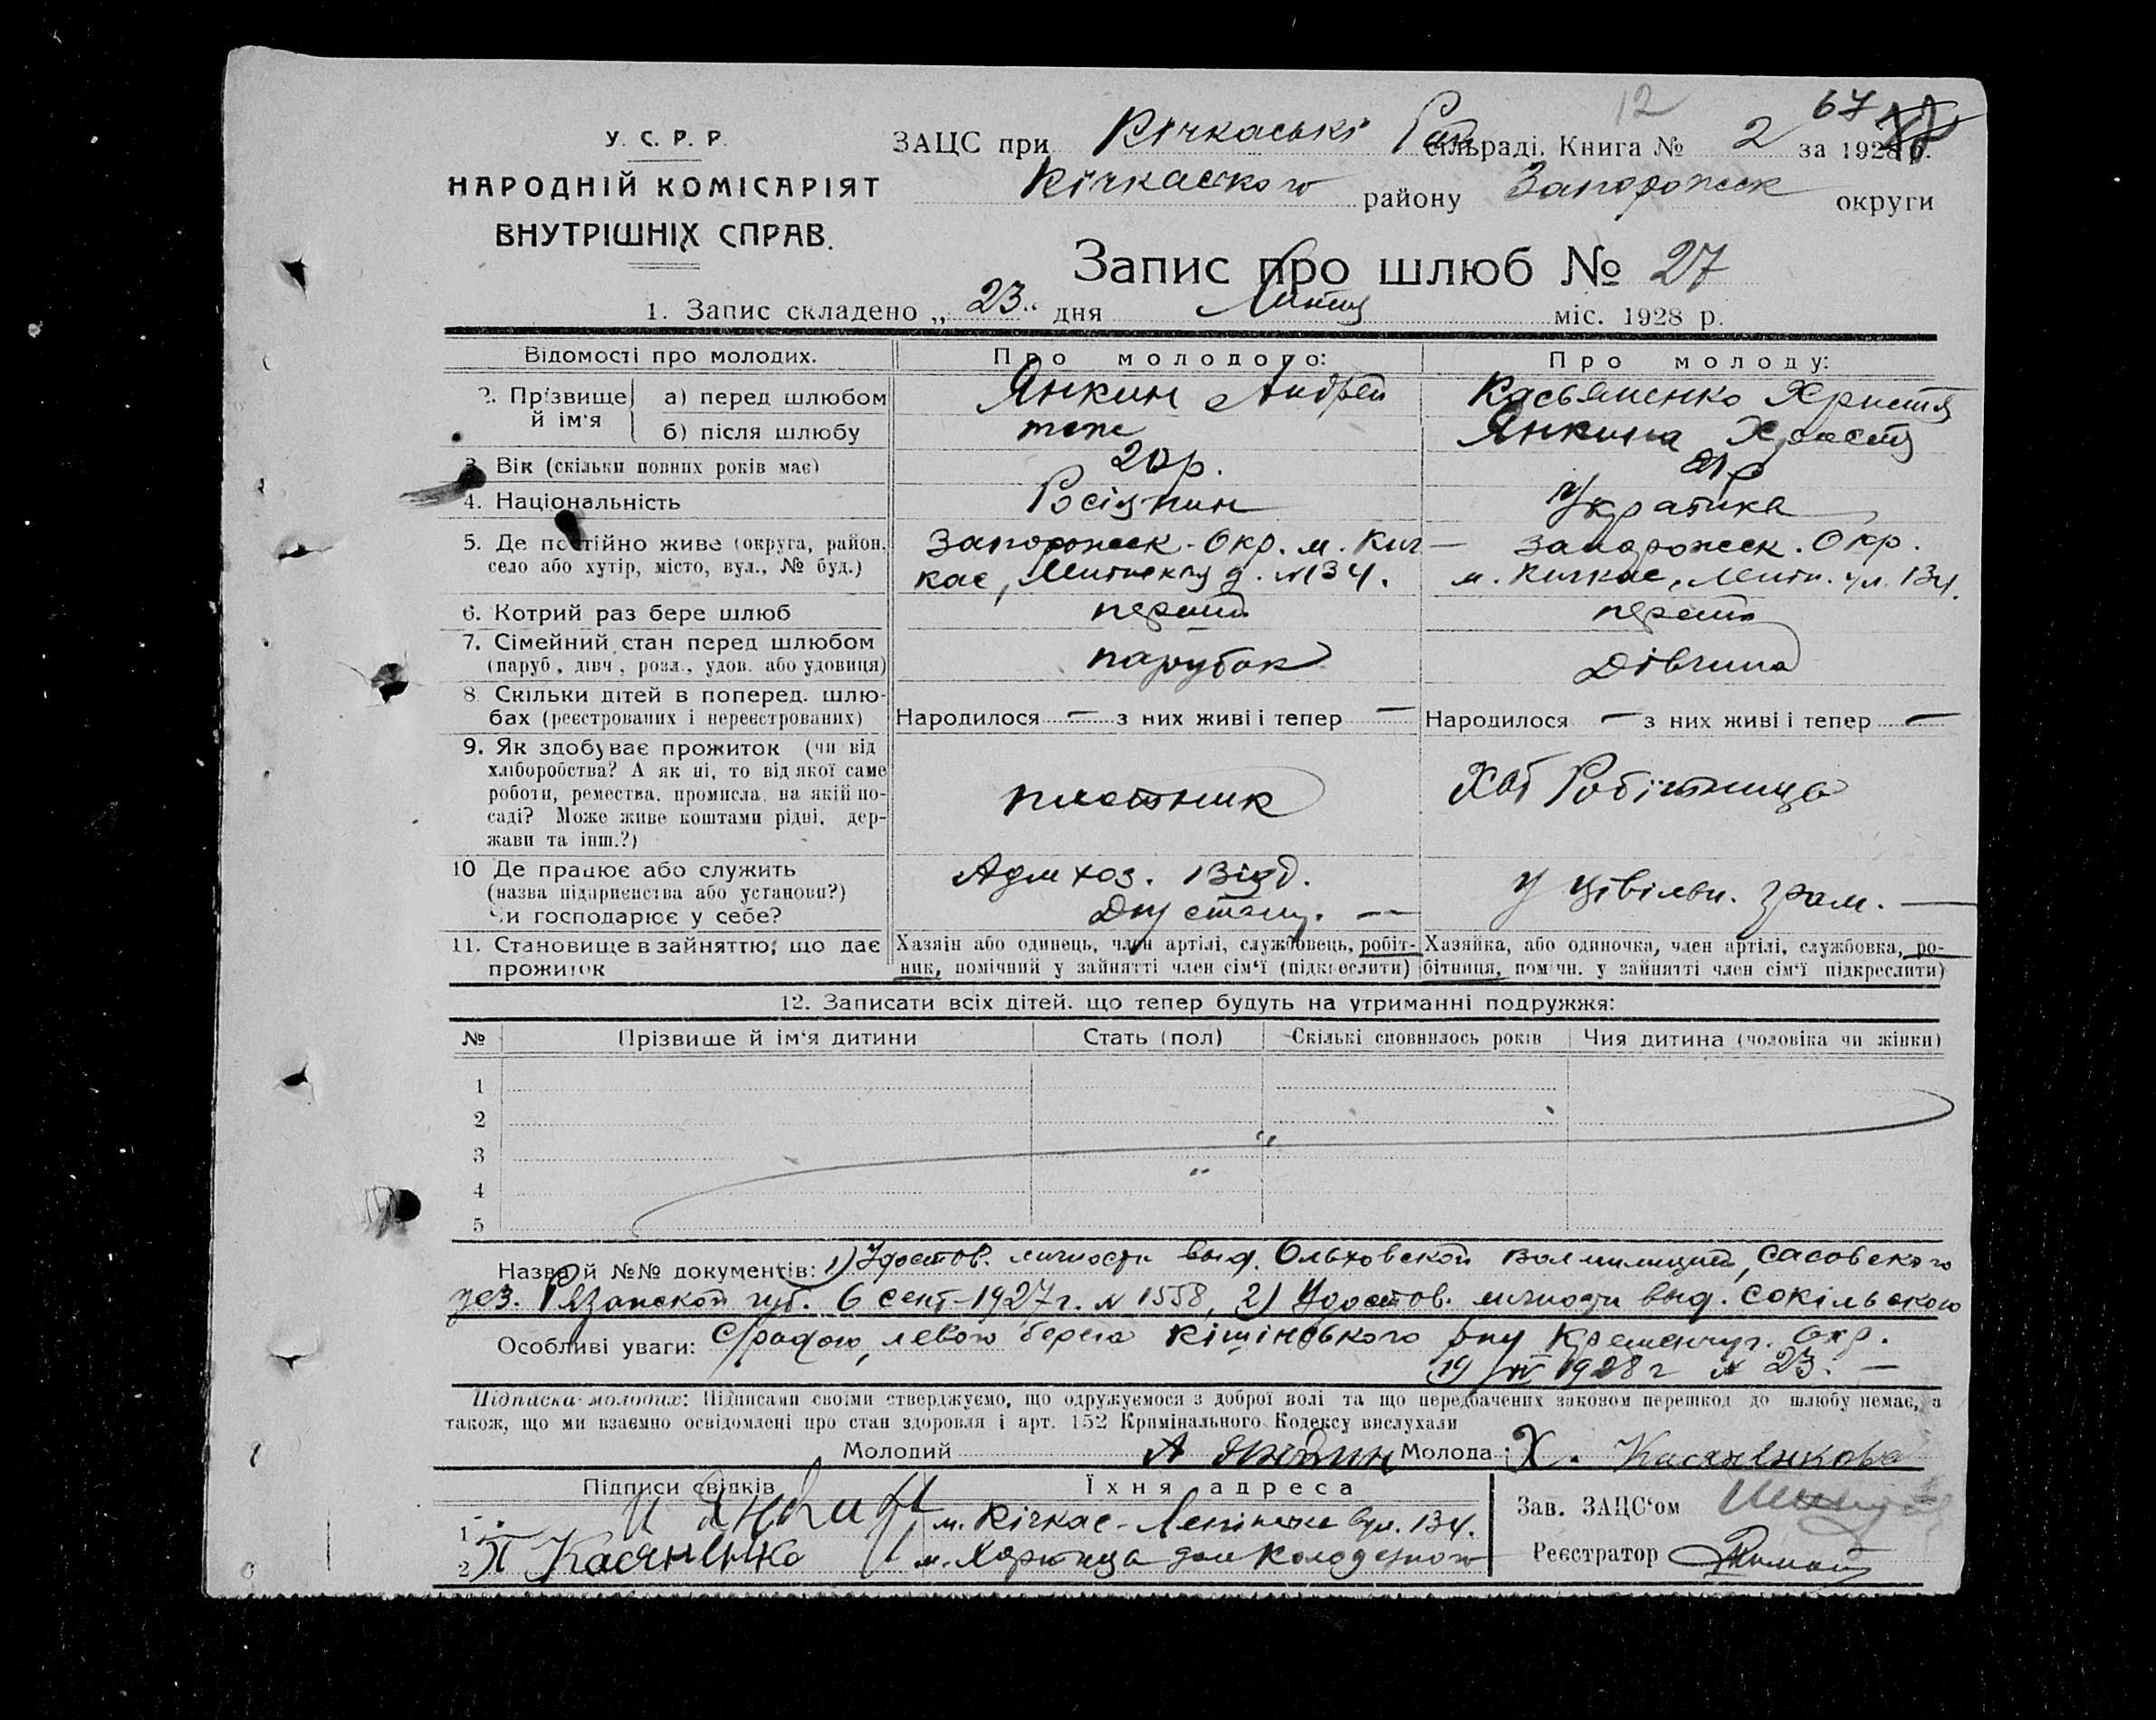 12 67
У. С. Р. Р.
НАРОДНІЙ КОМІСАРІЯТ
ВНУТРІШНІХ СПРАВ.
ЗАЦС при Кічкаські сільраді. Книга № 2 за 1928 р.
Кічкаского району Запорожск округи
Запис про шлюб № 27
1. Запис складено „ 23 “ дня Липця міс. 1928 р.
Відомості про молодих. Про молодого: Про молоду:
2. Прізвище й ім‘я
а) перед шлюбом Янкин Андрей Касьяненко Христя
б) після шлюбу теж Янкина Христя
3. Вік (скільки повних років має) 20 р. 21 р
4. Національність Росіянин Українка
5. Де постійно живе (округа, район, село або хутір, місто, вул., № буд.)
Запорожск. Окр. м. Кич-
кас, д. № 134.
Запорожск. Окр.
м. Кичкас, ул. 134.
6. Котрий раз бере шлюб перший перший
7. Сімейний стан перед шлюбом
(паруб., дівч., розл., удов. або удовиця) парубок Дівчина
8. Скільки дітей в поперед. шлю-
бах (реєстрованих і нереєстрованих) Народилося — з них живі і тепер — Народилося — з них живі і тепер —
9. Як здобуває прожиток (чи від
хліборобства? А як ні, то від якої саме
роботи, ремества, промисла, на якій по-
саді? Може живе коштами рідні, дер-
жави та інш.?)
плотник Хат Робітниця
10 Де працює або служить
(назва підприємства або установи?)
Чи господарює у себе?
Адм хоз. Відд.
у цівільн. грам. —
11. Становище в зайняттю, що дає
прожиток
Хазяїн або одинець, член артілі, службовець, робіт-
ник, помічний у зайнятті член сім‘ї (підкреслити)
Хазяйка, або одиночка, член артілі, службовка, ро-
бітниця, помічн. у зайнятті член сім‘ї підкреслити)
12. Записати всіх дітей, що тепер будуть на утриманні подружжя:
№ Прізвище й ім‘я дитини Стать (пол) Скількі сповнилось років Чия дитина (чоловіка чи жінки)
1
2
3
4
5
Назва й №№ документів: 1) Удостов. личности выд. Ольховской Волмилицией, Сасовского
уез. Рязанской губ. 6 сент-1927 г. № 1558, 2) Удостов. личности выд. Сокільского
Особливі уваги: С/радою, левого берега Кішінського р-ну Кременчуг. Окр.
19/IV 1928 г № 23. —
Підписка молодих: Підписами своїми стверджуємо, що одружуємося з доброї волі та що передбачених законом перешкод до шлюбу немає, а
також, що ми взаємно освідомлені про стан здоровля і арт. 152 Кримінального Кодексу вислухали
Молодий А Янкин Молода: Х. Касяненкова
Підписи свідків Їхня адреса
1 И Янкин м. Кічкас - Ленінська вул. 134.
2 П Касяненко м. Хортица дом Колодезного
Зав. ЗАЦС‘ом
Реєстратор